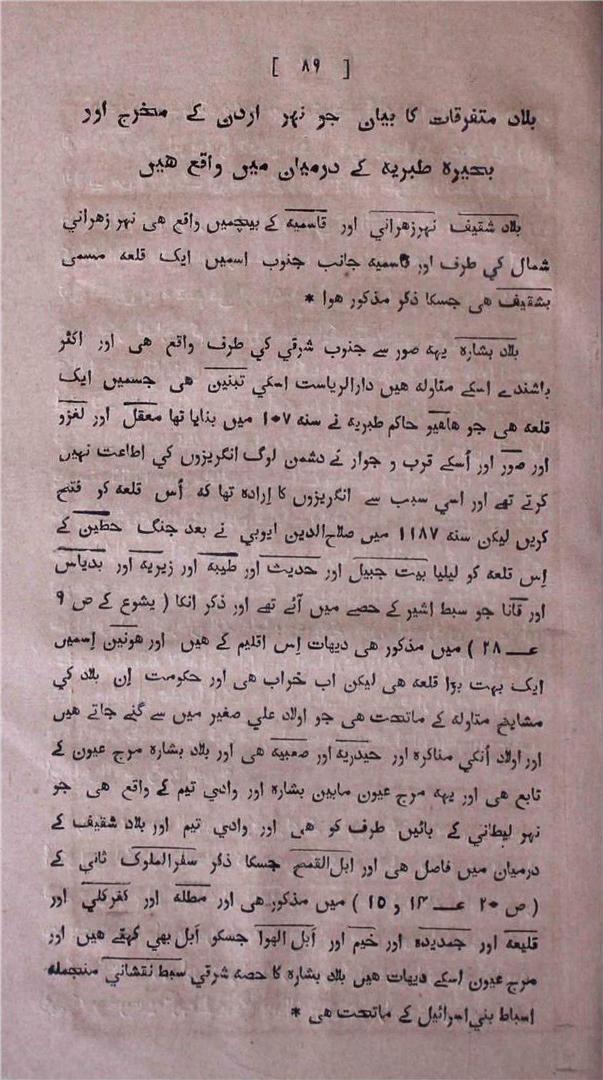 [ ٨٩ ]
بلاد متفرقات کا بیان جو نہر اردن کے مخرج اور
بحیرہ طبریہ کے درمیان میں واقع ھیں
بلاد شقیف نہرزھراني اور قاسمیہ کے بیچمیں واقع ھی نہر زھراني
شمال کي طرف اور قاسمیہ جانب جنوب اسمیں ایک قلعہ مسمی
بشقیف ھی جسکا ذکر مذکور ھوا *
بلاد بشارہ یہہ صور سے جنوب شرقي کي طرف واقع ھی اور اکثر
باشندے اسکے متاولہ ھیں دارالریاست اسکي تبنین ھی جسمیں ایک
قلعہ ھی جو ھافیو حاکم طبریہ نے سنہ ١٠٧ میں بنایا تھا معقل اور لغزو
اور صور اور اُسکے قرب و جوار نے دشمن لوگ انگریزوں کي اطاعت نہیں
کرتے تھے اور اسي سبب سے انگریزوں کا اِرادہ تھا کہ اُس قلعہ کو فتح
کریں لیکن سنہ ١١٨٧ میں صلاح‌الدین ایوبي نے بعد جنگ حطین کے
اِس قلعہ کو لیلیا بیت جبیل اور حدیث اور طیبہ اور زیریہ اور بدیاس
اور قانا جو سبط اشیر کے حصے میں آئے تھے اور ذکر انکا ( یشوع کے ص ٩
عــ ٢٨ ) میں مذکور ھی دیہات اِس اقلیم کے ھیں اور ھونین اِسمیں
ایک بہت بڑا قلعہ ھی لیکن اب خراب ھی اور حکومت اِن بلاد کي
مشایخ متاولہ کے ماتحت ھی جو اولاد علي صغیر میں سے گنے جاتے ھیں
اور اولاد اُنکي مناکرہ اور حیدریہ اور صعبیہ ھی اور بلاد بشارہ مرج عیون کے
تابع ھی اور یہہ مرج عیون مابین بشارہ اور وادي تیم کے واقع ھی جو
نہر لیطاني کے بائیں طرف کو ھی اور وادي تیم اور بلاد شقیف کے
درمیان میں فاصل ھی اور ابل‌القمح جسکا ذکر سفرالملوک ثاني کے
( ص ٢٠ عــ ١٤ و ١٥ ) میں مذکور ھی اور مطلہ اور کفرکلي اور
قلیعہ اور جمدیدہ اور خیم اور اَبل الہوا جسکو اَبل بھي کہتے ھیں اور
مرج عیون اسکے دیہات ھیں بلاد بشارہ کا حصہ شرقي سبط نقشاني منجملہ
اسباط بني‌اسرائیل کے ماتحت ھی *